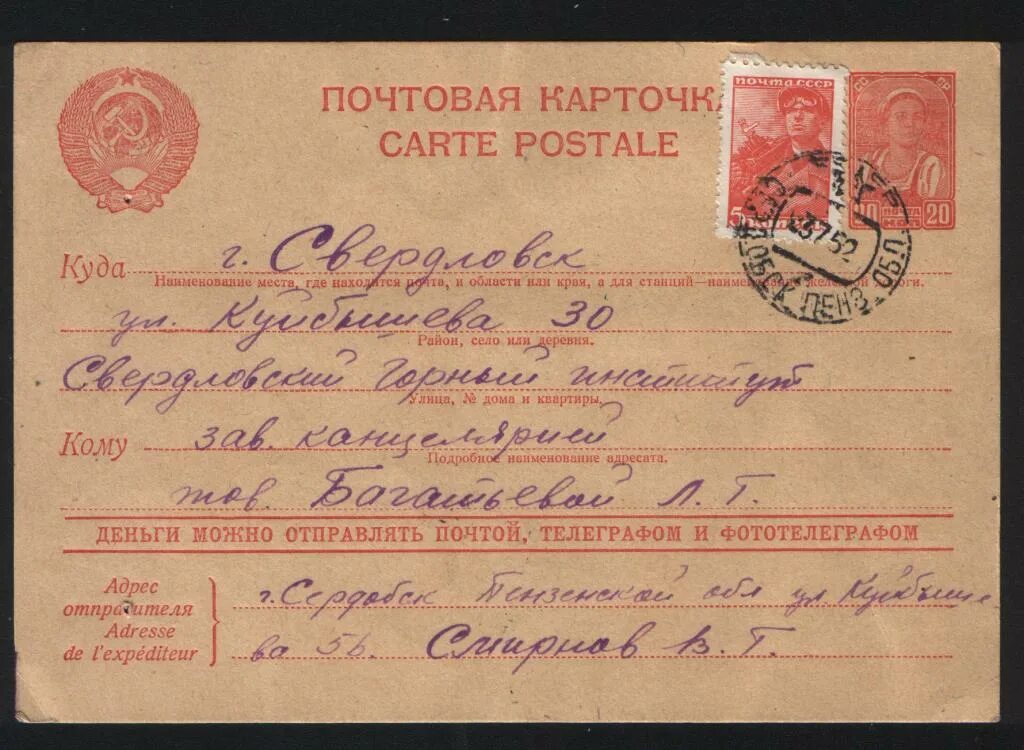 ПОЧТОВАЯ КАРТОЧК
CARTE POSTALE
ПОЧТА СССР
СС СР
5
10 ПОЧТА 20
23 7 52
СЕРДОБСК ПЕНЗ. ОБЛ.
Куда г. Свердловск
Наименование места, где находится почта, и области или края, а для станций—наименование железной дороги.
ул. Куйбышева 30
Район, село или деревня.
Свердловский Горный институт
Улица, № дома и квартиры.
Кому зав. канцелярией
Подробное наименование адресата.
тов. Багатьевой Л. Г.
ДЕНЬГИ МОЖНО ОТПРАВЛЯТЬ ПОЧТОЙ, ТЕЛЕГРАФОМ И ФОТОТЕЛЕГРАФОМ
Адрес отправителя
Adresse de l'expéditeur
г. Сердобск Пензенской обл ул Куйбыше
ва 56. Смирнов В. Г.